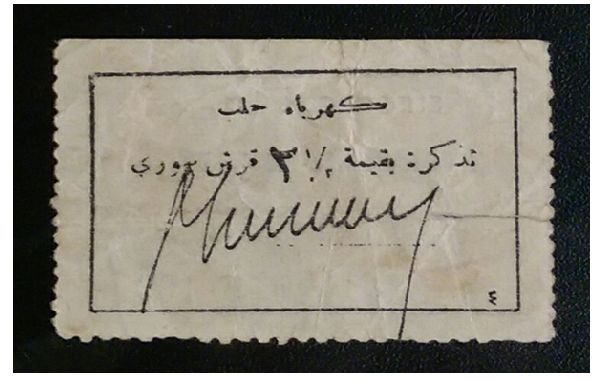 كهرباء حلب
تذكرة بقيمة ½ ٢ قرش سوري
٤